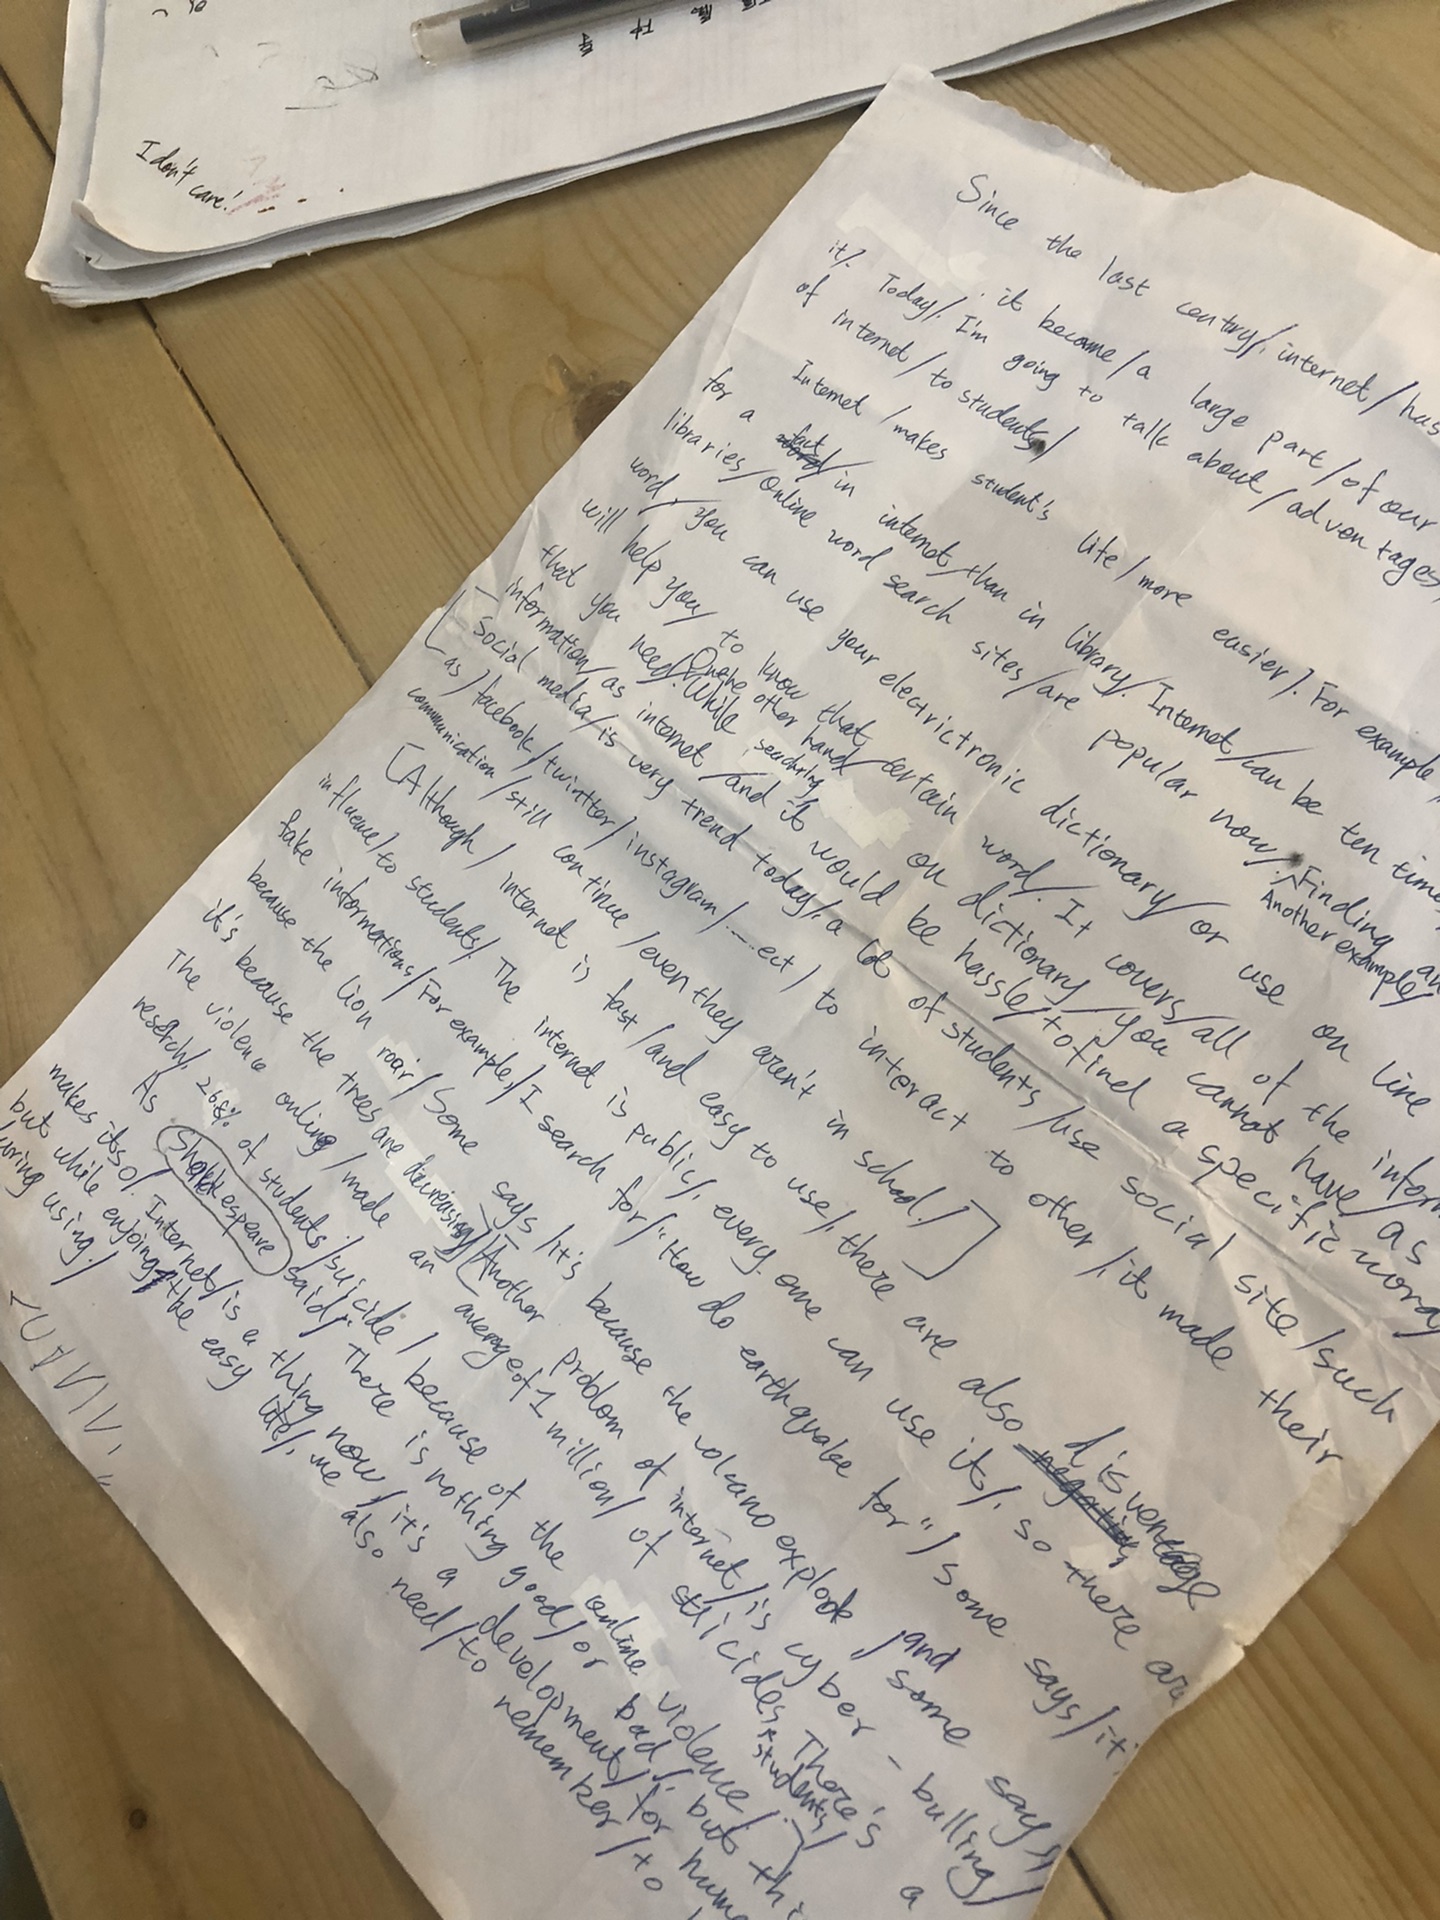 I don't care!
Since the last centry/, internet/has
it/. it become/a large part/of our
Today/. I'm going to talk about/advontages,
of internet/to students/
Internet/makes student's life/more easier/. For example,
for a fact/in internet/than in library/. Internet/can be ten times
libraries/Online word search sites/are popular now/. Finding an
Another example/
word/you can use your electrictronic dictionary/or use on line
will help you/to know that certain word/. It covers/all of the inform
that you need/. While searching on dictionary/you cannot have/as
On the other hand/
information/as internet/and it would be hassle/to find a specific word/
[Social media/is very trend today/, a lot of students/use social site/such
as/facebook/twintter/instagram/....ect/to interact to other/, it made their
communication/still continue/even they aren't in school/.]
[Although/internet is fast/and easy to use/, there are also disventage
influene/to students/. The internet is public/, every one can use it/, so there are
fake informations/For example/, I search for/"How do earthquake for"/some says/it
because the lion roar/Some says/it's because the volcano explode/, and some says/
it's because the trees are decreasing/(Another problem of internet/is cyber-bulling/
The violence online/made an average of 1 million/of suicides. There's a
students/
reserch/, 26.8% of students/suicide/because of the online violence/.)
As Shakespeare said/, There is nothing good/or bad/, but thi
makes it so/. Internet/is a thing now/, it's a development/for huma
but while enjoing the easy life/, we also need/to remember/to
uring using/